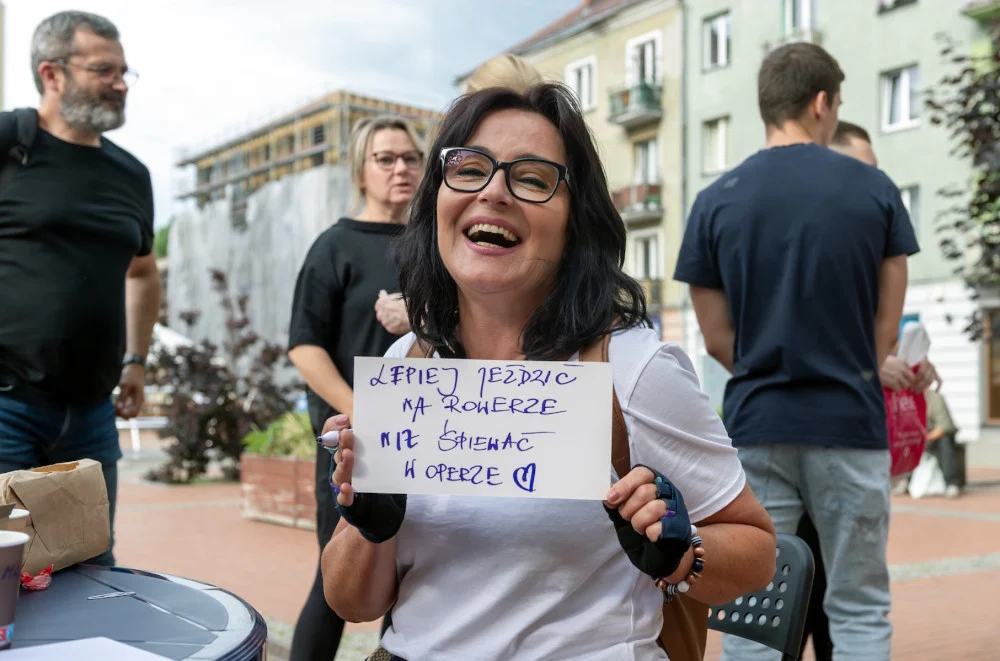 LEPIEJ JEŹDZIĆ
NA ROWERZE
NIŻ ŚPIEWAĆ
W OPERZE